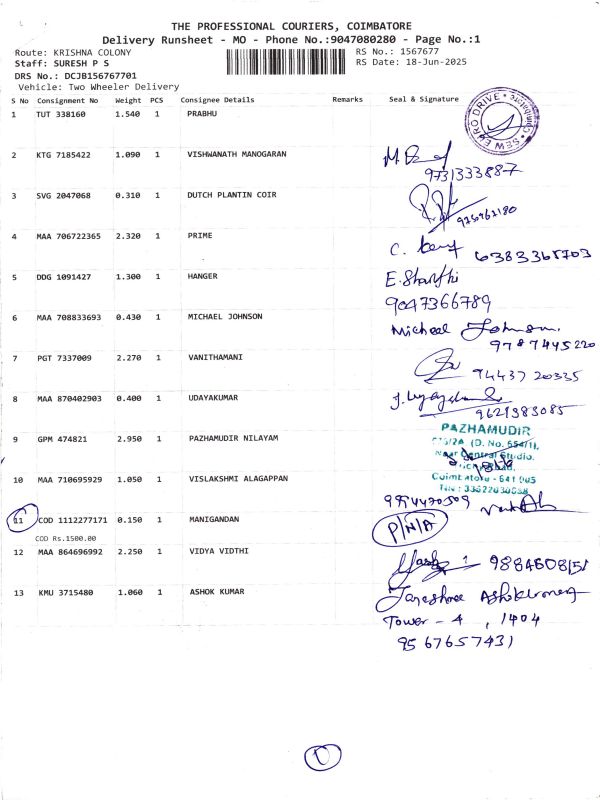 THE PROFESSIONAL COURIERS, COIMBATORE
Delivery Runsheet - MO - Phone No.:9047080280 - Page No.:1
Route: KRISHNA COLONY RS No.: 1567677
Staff: SURESH P S RS Date: 18-Jun-2025
DRS No.: DCJB156767701
Vehicle: Two Wheeler Delivery
S No Consignment No Weight PCS Consignee Details Remarks Seal & Signature
1 TUT 338160 1.540 1 PRABHU
SEW EURO DRIVE
2 KTG 7185422 1.090 1 VISHWANATH MANOGARAN
9731333887
3 SVG 2047068 0.310 1 DUTCH PLANTIN COIR
4 MAA 706722365 2.320 1 PRIME
6383365703
5 DDG 1091427 1.300 1 HANGER E. Sharthi
9047366789
6 MAA 708833693 0.430 1 MICHAEL JOHNSON Micheal Johnson.
9787445220
7 PGT 7337009 2.270 1 VANITHAMANI
94437 20335
8 MAA 870402903 0.400 1 UDAYAKUMAR
9621383085
9 GPM 474821 2.950 1 PAZHAMUDIR NILAYAM PAZHAMUDIR
(D. No. 654/1),
Near Central Studio.
Coimbatore - 641 005
10 MAA 710695929 1.050 1 VISLAKSHMI ALAGAPPAN
11 COD 1112277171 0.150 1 MANIGANDAN P/N/A
COD Rs.1500.00
12 MAA 864696992 2.250 1 VIDYA VIDTHI 9884608151
13 KMU 3715480 1.060 1 ASHOK KUMAR
Tower - 4, 1404
9567657431
1